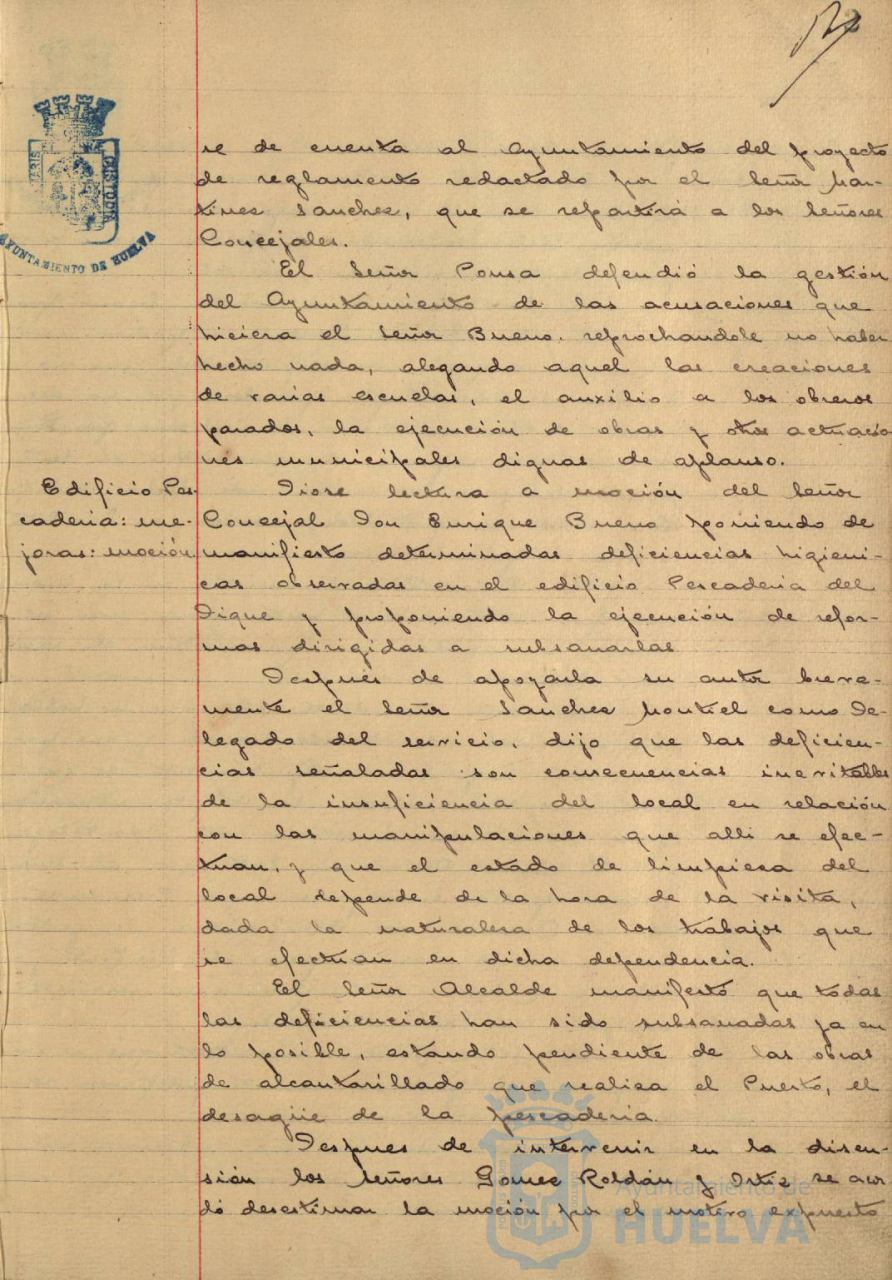 se de cuenta al Ayuntamiento del proyecto
de reglamento redactado por el Señor Mar-
tinez Sanchez, que se repartirá a los Señores
Concejales.
El Señor Ponsa defendió la gestión
del Ayuntamiento de las acusaciones que
hiciera el Señor Bueno, reprochandole no haber
hecho nada, alegando aquel las creaciones
de varias escuelas, el auxilio a los obreros
parados, la ejecución de obras y otras actuacio
nes municipales dignas de aplauso.
Edificio Pes-
caderia: me-
joras: moción
Diose lectura a moción del Señor
Concejal Don Enrique Bueno poniendo de
manifiesto determinadas deficiencias higieni-
cas observadas en el edificio Pescaderia del
Dique y proponiendo la ejecución de refor-
mas dirigidas a subsanarlas
Después de apoyarla su autor breve-
mente el Señor Sanchez Montiel como De-
legado del servicio, dijo que las deficien-
cias señaladas son consecuencias inevitables
de la insuficiencia del local en relación
con las manipulaciones que alli se efec-
tuan, y que el estado de limpieza del
local depende de la hora de la visita,
dada la naturaleza de los trabajos que
se efectúan en dicha dependencia.
El Señor Alcalde manifestó que todas
las deficiencias han sido subsanadas ya en
lo posible, estando pendiente de las obras
de alcantarillado que realiza el Puerto, el
desagüe de la pescaderia.
Despues de intervenir en la discu-
sión los Señores Gomez Roldán y Ortiz se acor
dó desestimar la moción por el motivo expuesto
AYUNTAMIENTO DE HUELVA
Ayuntamiento de
HUELVA